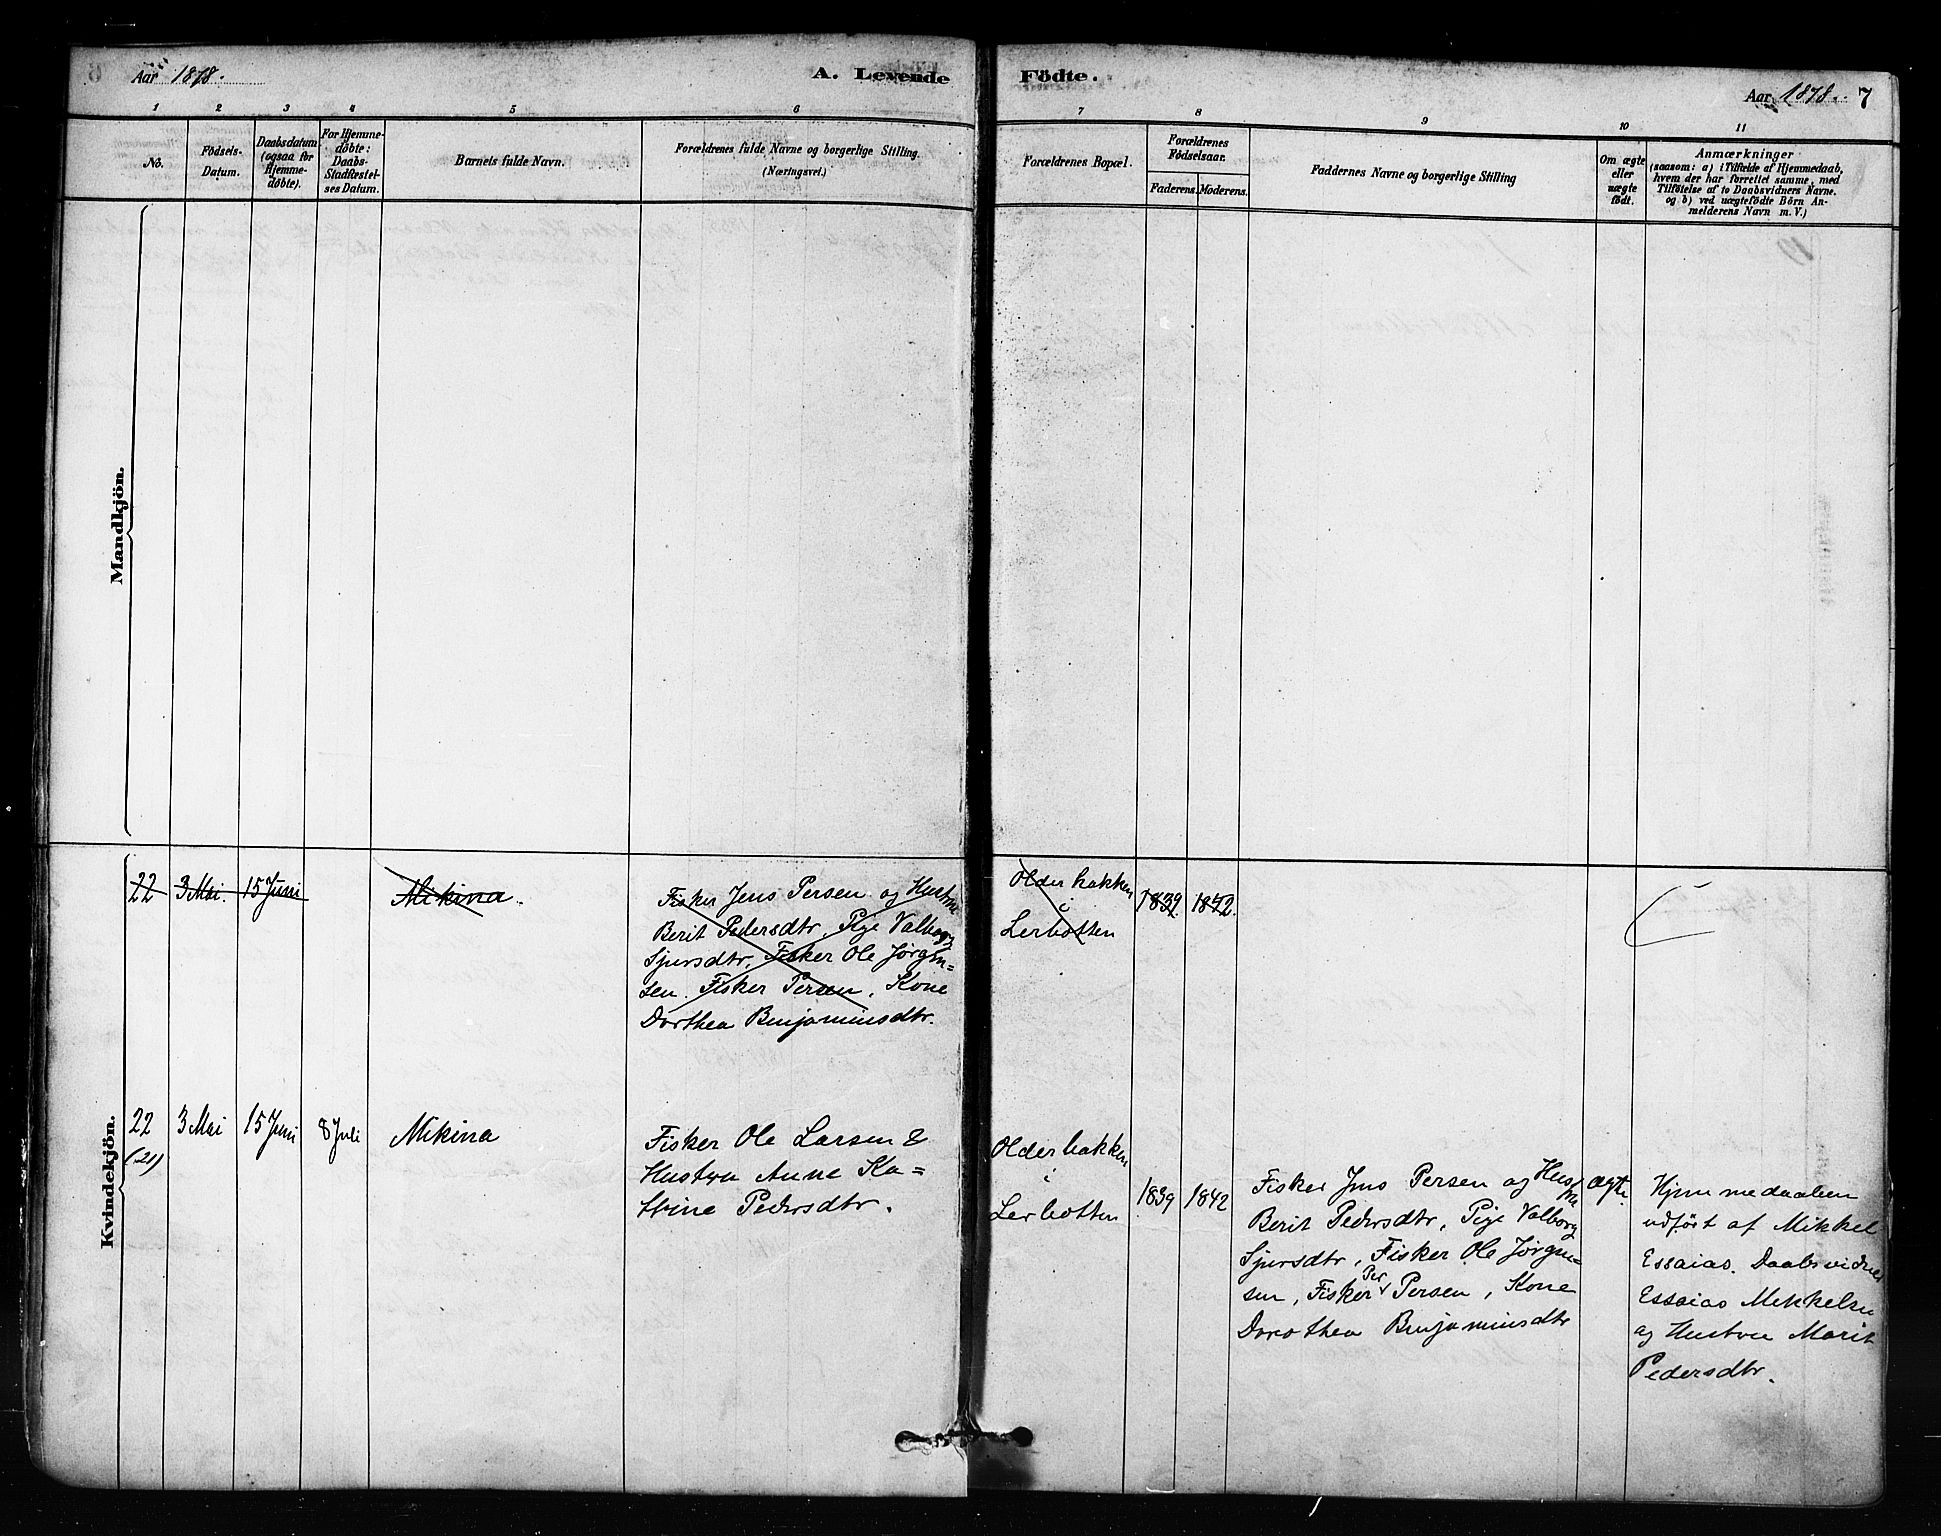 Aar 1878.
A. Levende
Födte.
Aar 1878. 7
1 2 3 4 5 6 7 8 9 10 11
No.
Födsels-
Datum.
Daabsdatum
(ogsaa for
Hjemme-
døbte).
For Hjemme-
döbte:
Daabs-
Stadfæstel-
ses Datum.
Barnets fulde Navn.
Forældrenes fulde Navne og borgerlige Stilling.
(Næringsvei.)
Forældrenes Bopæl.
Forældrenes
Födselsaar.
Faderens. Moderens.
Faddernes Navne og borgerlige Stilling
Om ægte
eller
uægte
født.
Anmærkninger
(saasom: a) i Tilfælde af Hjemmedaab,
hvem der har forrettet samme, med
Tilföielse af to Daabsvidners Navne,
og b) ved uægtefödte Börn An-
melderens Navn m. V.)
Mandkjön.
22 3 Mai. 15 Juni
Mikina.
Fisker Jens Persen og Hustru
Berit Pedersdtr, Pige Valborg
Sjursdtr, Fisker Ole Jørgen=
sen. Fisker Persen, Kone
Dorthea Benjaminsdtr.
Olderbakken
i
Lerbotten
1839. 1842.
Kvindekjön.
22
(21)
3 Mai
15 Juni
8 Juli
Mikina
Fisker Ole Larsen &
Hustru Anne Ka=
thrine Pedersdtr.
Olderbakken
i
Lerbotten
1839 1842
Fisker Jens Persen og Hustru
Berit Pedersdtr, Pige Valborg
Sjursdtr, Fisker Ole Jørgen=
sen, Fisker Per Persen, Kone
Dorothea Benjaminsdtr
ægte
Hjemmedaaben
udført af Mikkel
Essaias. Daabsvidner
Essaias Mikkelsen
og Hustru Marit
Pedersdtr.